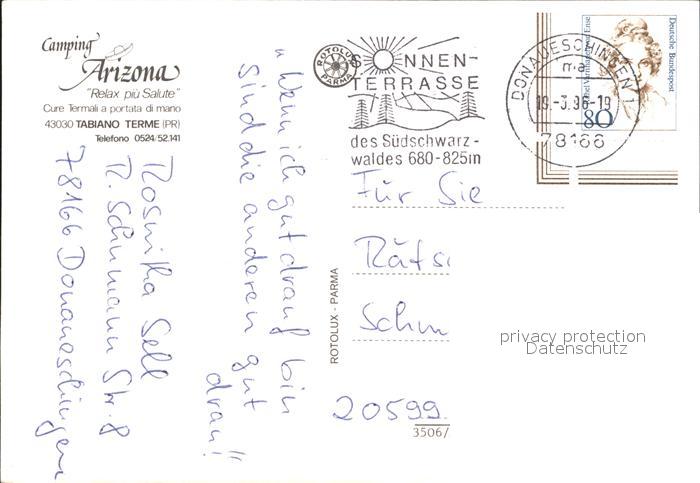 Camping
Arizona
"Relax più Salute"
Cure Termali a portata di mano
43030 TABIANO TERME (PR)
Telefono 0524/52.141
"Wenn ich gut drauf bin
sind die anderen gut
dran!"
Sell
R. Schumann Str. 8
78166 Donaueschingen
ROTOLUX - PARMA
ROTOLUX
PARMA
SONNEN-
TERRASSE
des Südschwarz-
waldes 680-825m
DONAUESCHINGEN 1
ma
19.-3.96-19
78166
Deutsche Bundespost
80
Für Sie
Rätsi
Schm
20599
3506/
privacy protection
Datenschutz